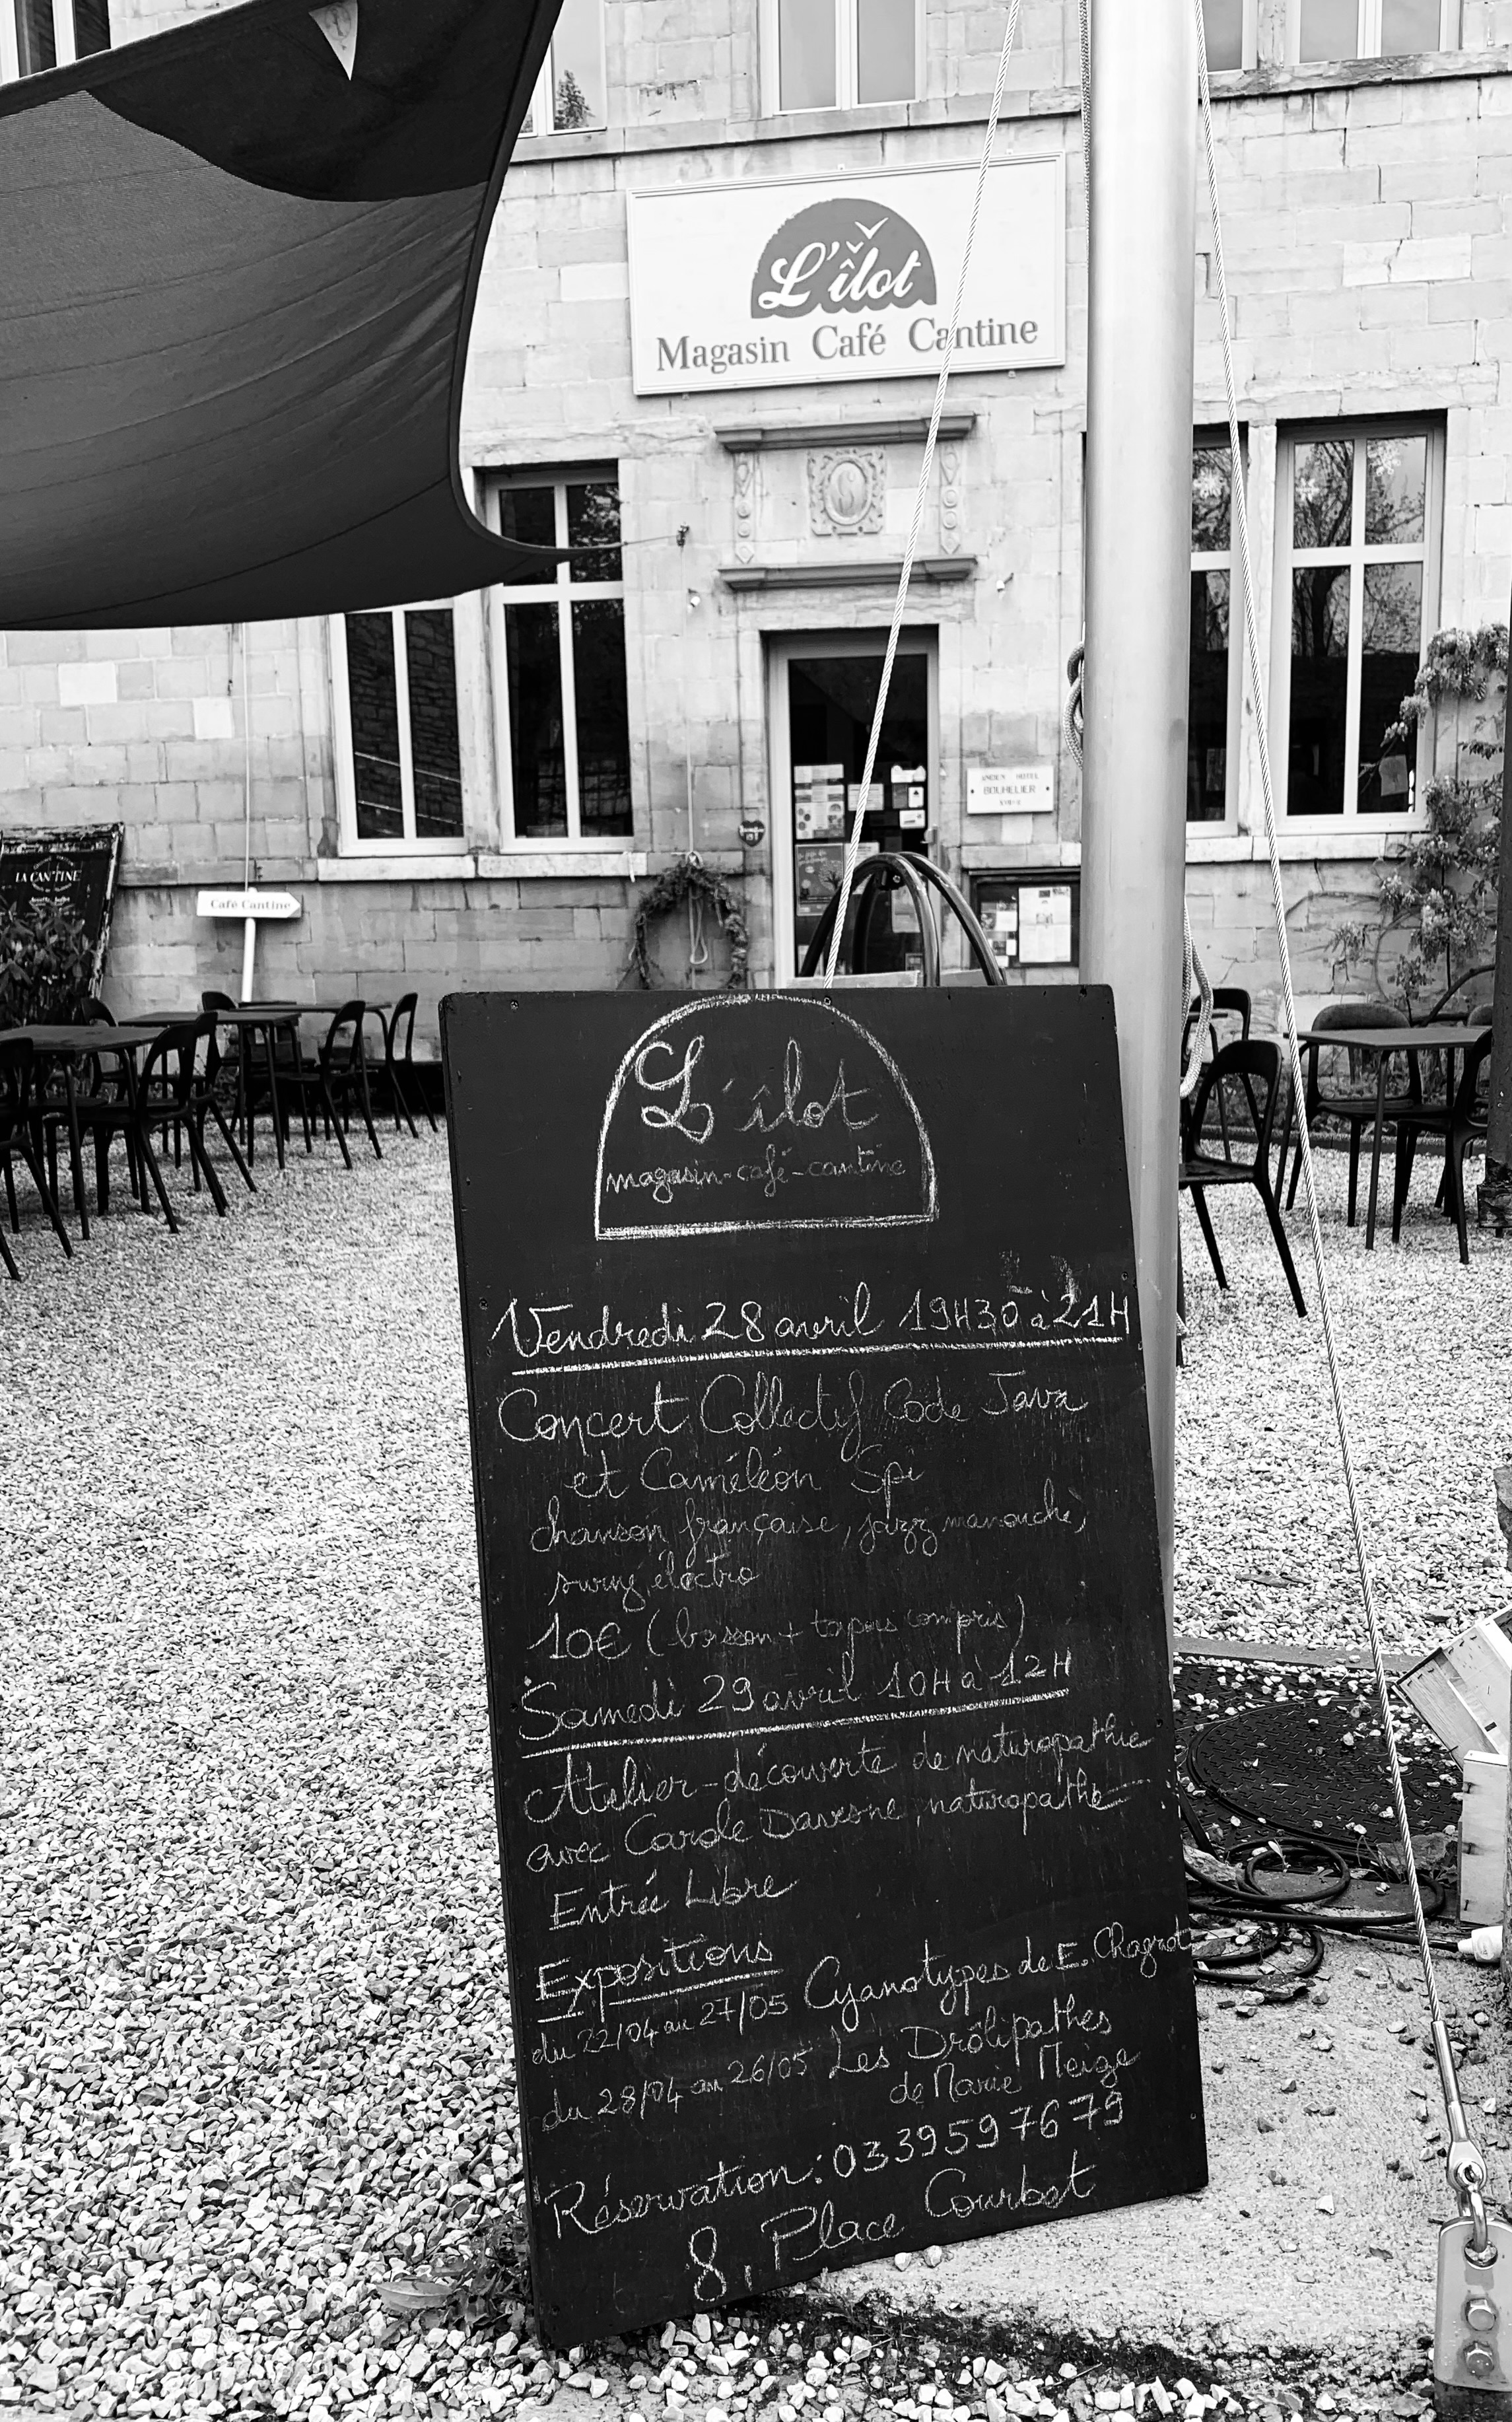 L'îlot
Magasin Café Cantine
ANCIEN HOTEL
BOUHELIER
LA CANTINE
Café Cantine
L'îlot
magasin-café-cantine
Vendredi 28 avril 19H30 à 21H
Concert Collectif Code Java
et Caméléon Spi
chanson française, jazz manouche,
swing, électro
10€ (boisson + tapas compris)
Samedi 29 avril 10H à 12H
Atelier-découverte de naturopathie
avec Carole Davesne, naturopathe
Entrée Libre
Expositions
du 22/04 au 27/05 Cyanotypes de E. Chagnot
du 28/04 au 26/05 Les Drôlipathes
de Marie Meige
Réservation : 0339597679
8, Place Courbet